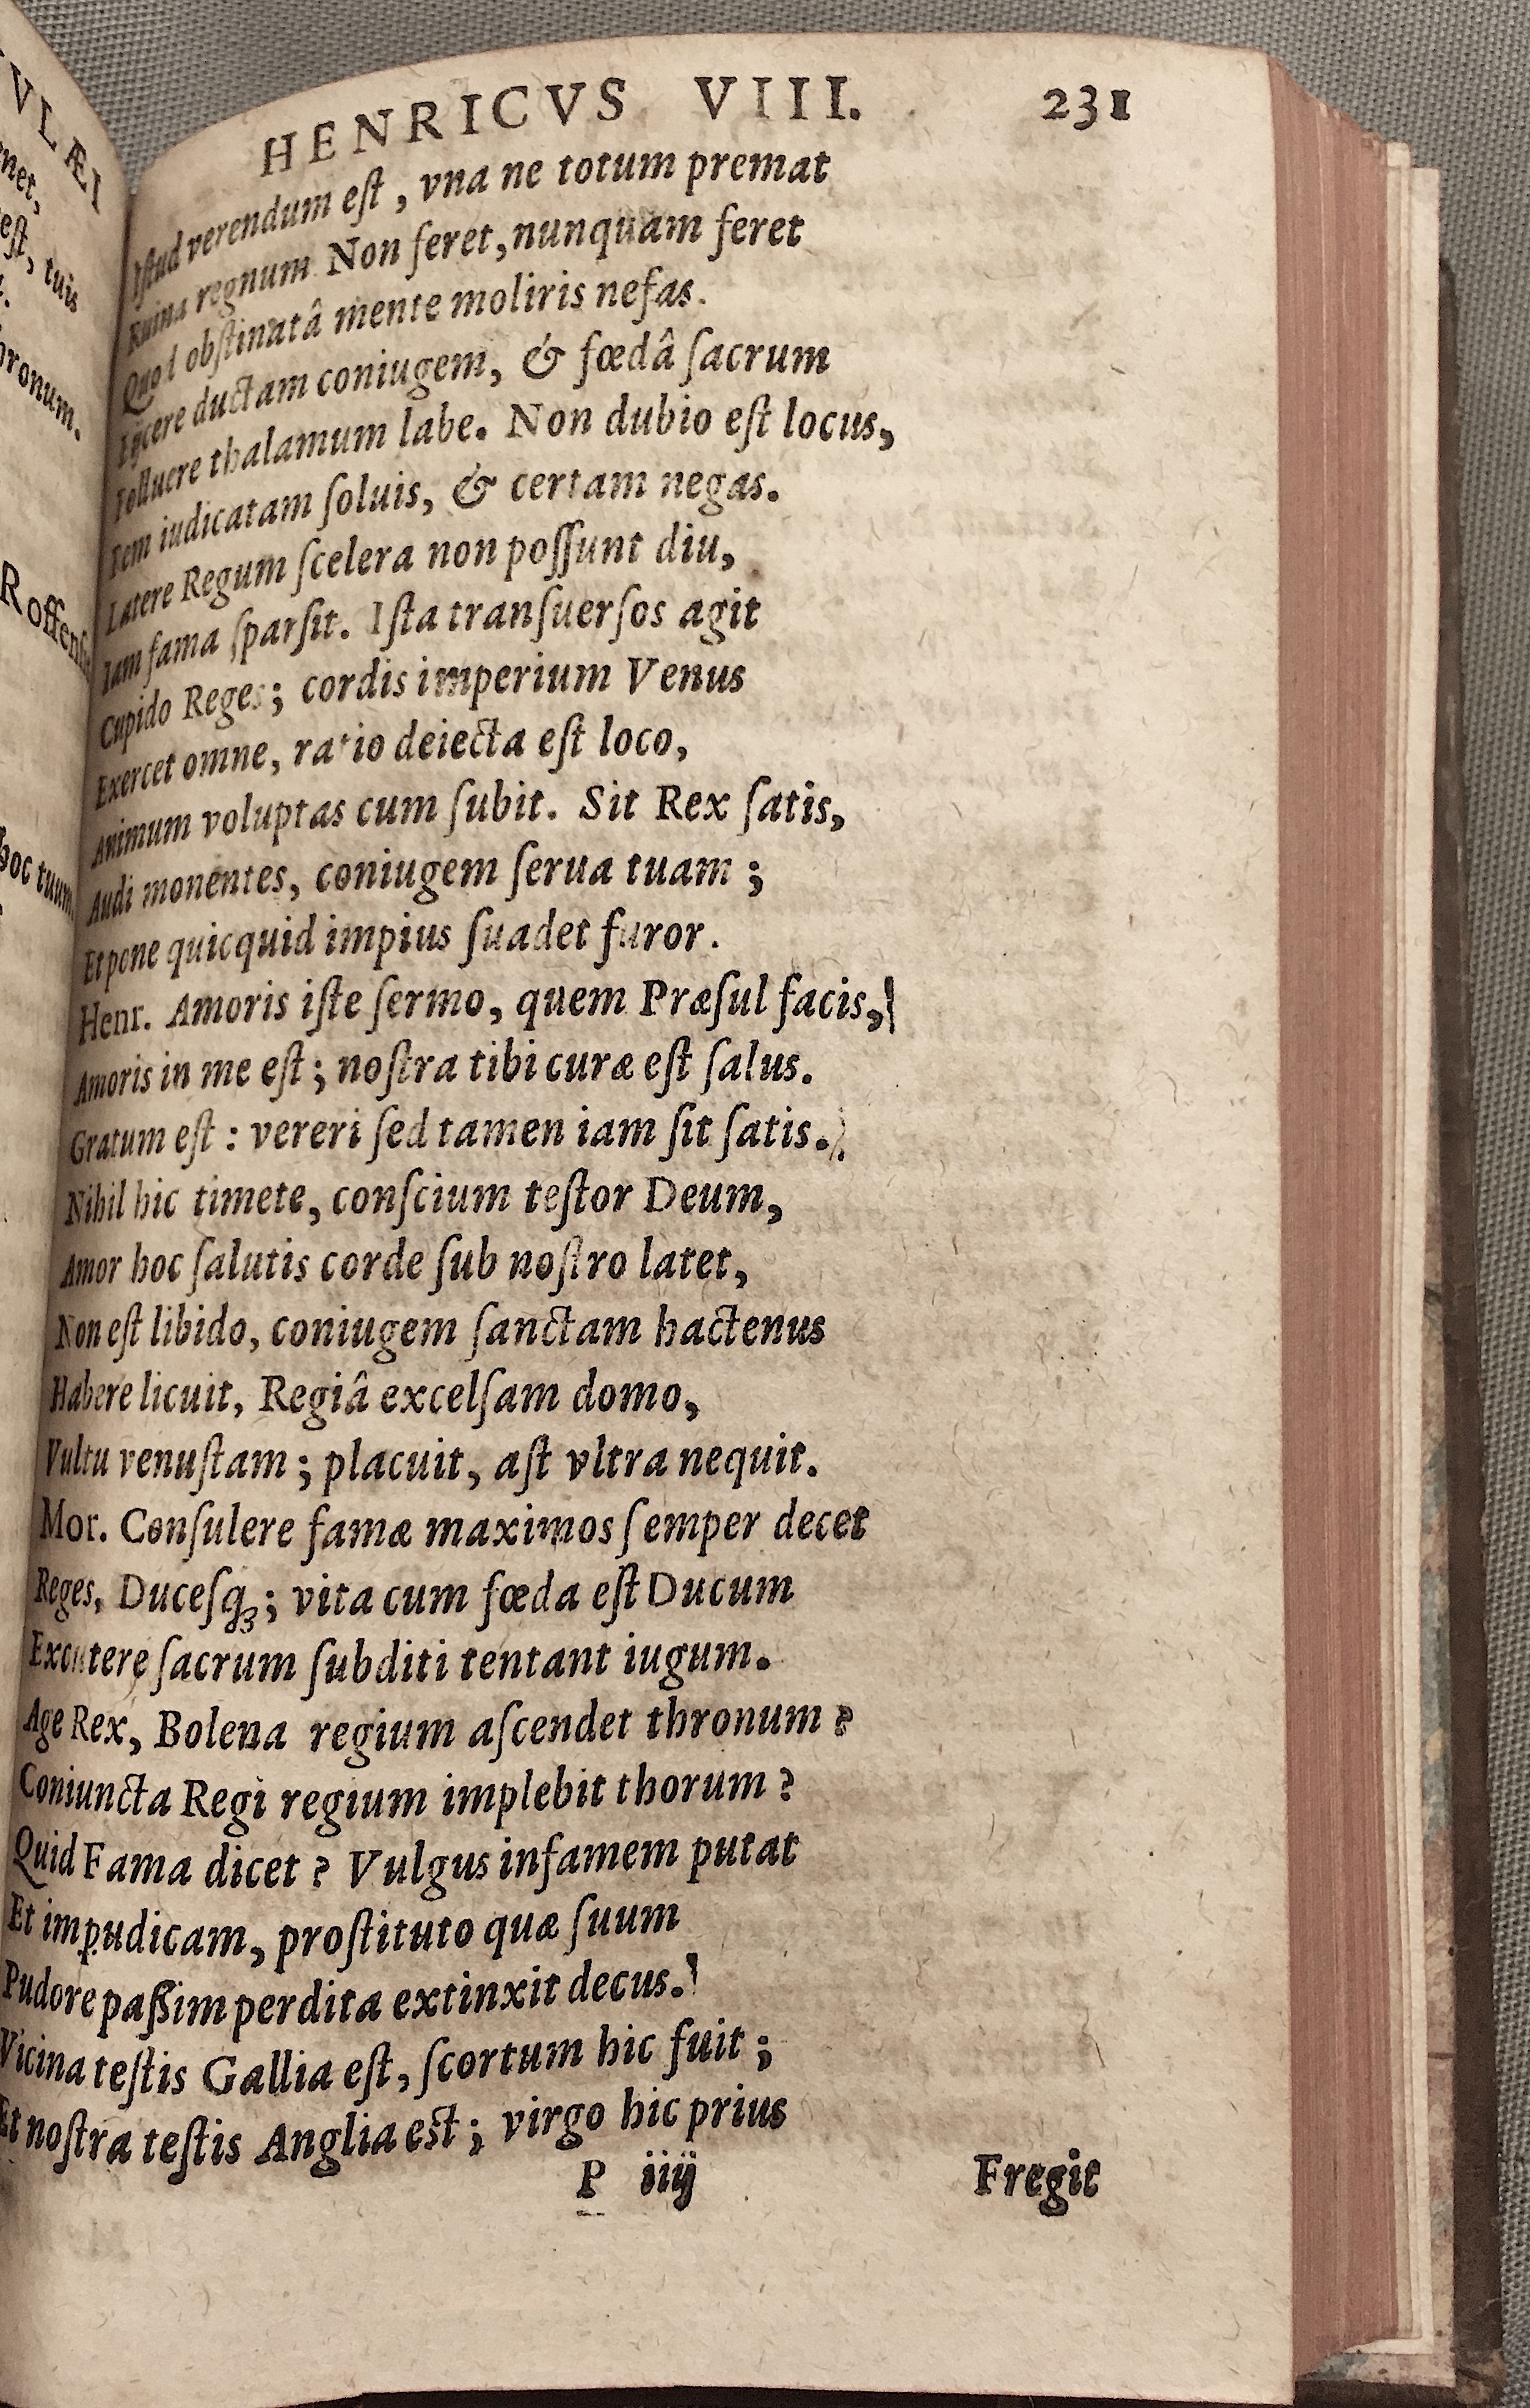 VLÆI
est, tuis
hronum.
Roffens
hoc tuum
HENRICVS VIII. 231
Iſtud verendum eſt, vna ne totum premat
Ruina regnum. Non feret, nunquam feret
Quod obſtinatâ mente moliris nefas.
ductam coniugem, & fœdâ ſacrum
Polluere thalamum labe. Non dubio eſt locus,
Rem iudicatam ſoluis, & certam negas.
Latere Regum ſcelera non poſſunt diu,
Iam fama ſparſit. Iſta tranſuerſos agit
Cupido Reges; cordis imperium Venus
Exercet omne, ratio deiecta eſt loco,
Animum voluptas cum ſubit. Sit Rex ſatis,
Audi monentes, coniugem ſerua tuam;
Et pone quicquid impius ſuadet furor.
Henr. Amoris iſte ſermo, quem Præſul facis,
Amoris in me eſt; noſtra tibi curæ eſt ſalus.
Gratum eſt: vereri ſed tamen iam ſit ſatis.
Nihil hic timete, conſcium teſtor Deum,
Amor hoc ſalutis corde ſub noſtro latet,
Non eſt libido, coniugem ſanctam hactenus
Habere licuit, Regiâ excelſam domo,
Vultu venuſtam; placuit, aſt vltra nequit.
Mor. Conſulere famæ maximos ſemper decet
Reges, Duceſqꝫ; vita cum fœda eſt Ducum
Excutere ſacrum ſubditi tentant iugum.
Age Rex, Bolena regium aſcendet thronum?
Coniuncta Regi regium implebit thorum?
Quid Fama dicet? Vulgus infamem putat
Et impudicam, proſtituto quæ ſuum
Pudore paßim perdita extinxit decus.
Vicina teſtis Gallia eſt, ſcortum hic fuit;
Et noſtra teſtis Anglia eſt; virgo hic prius
P iiij Fregit